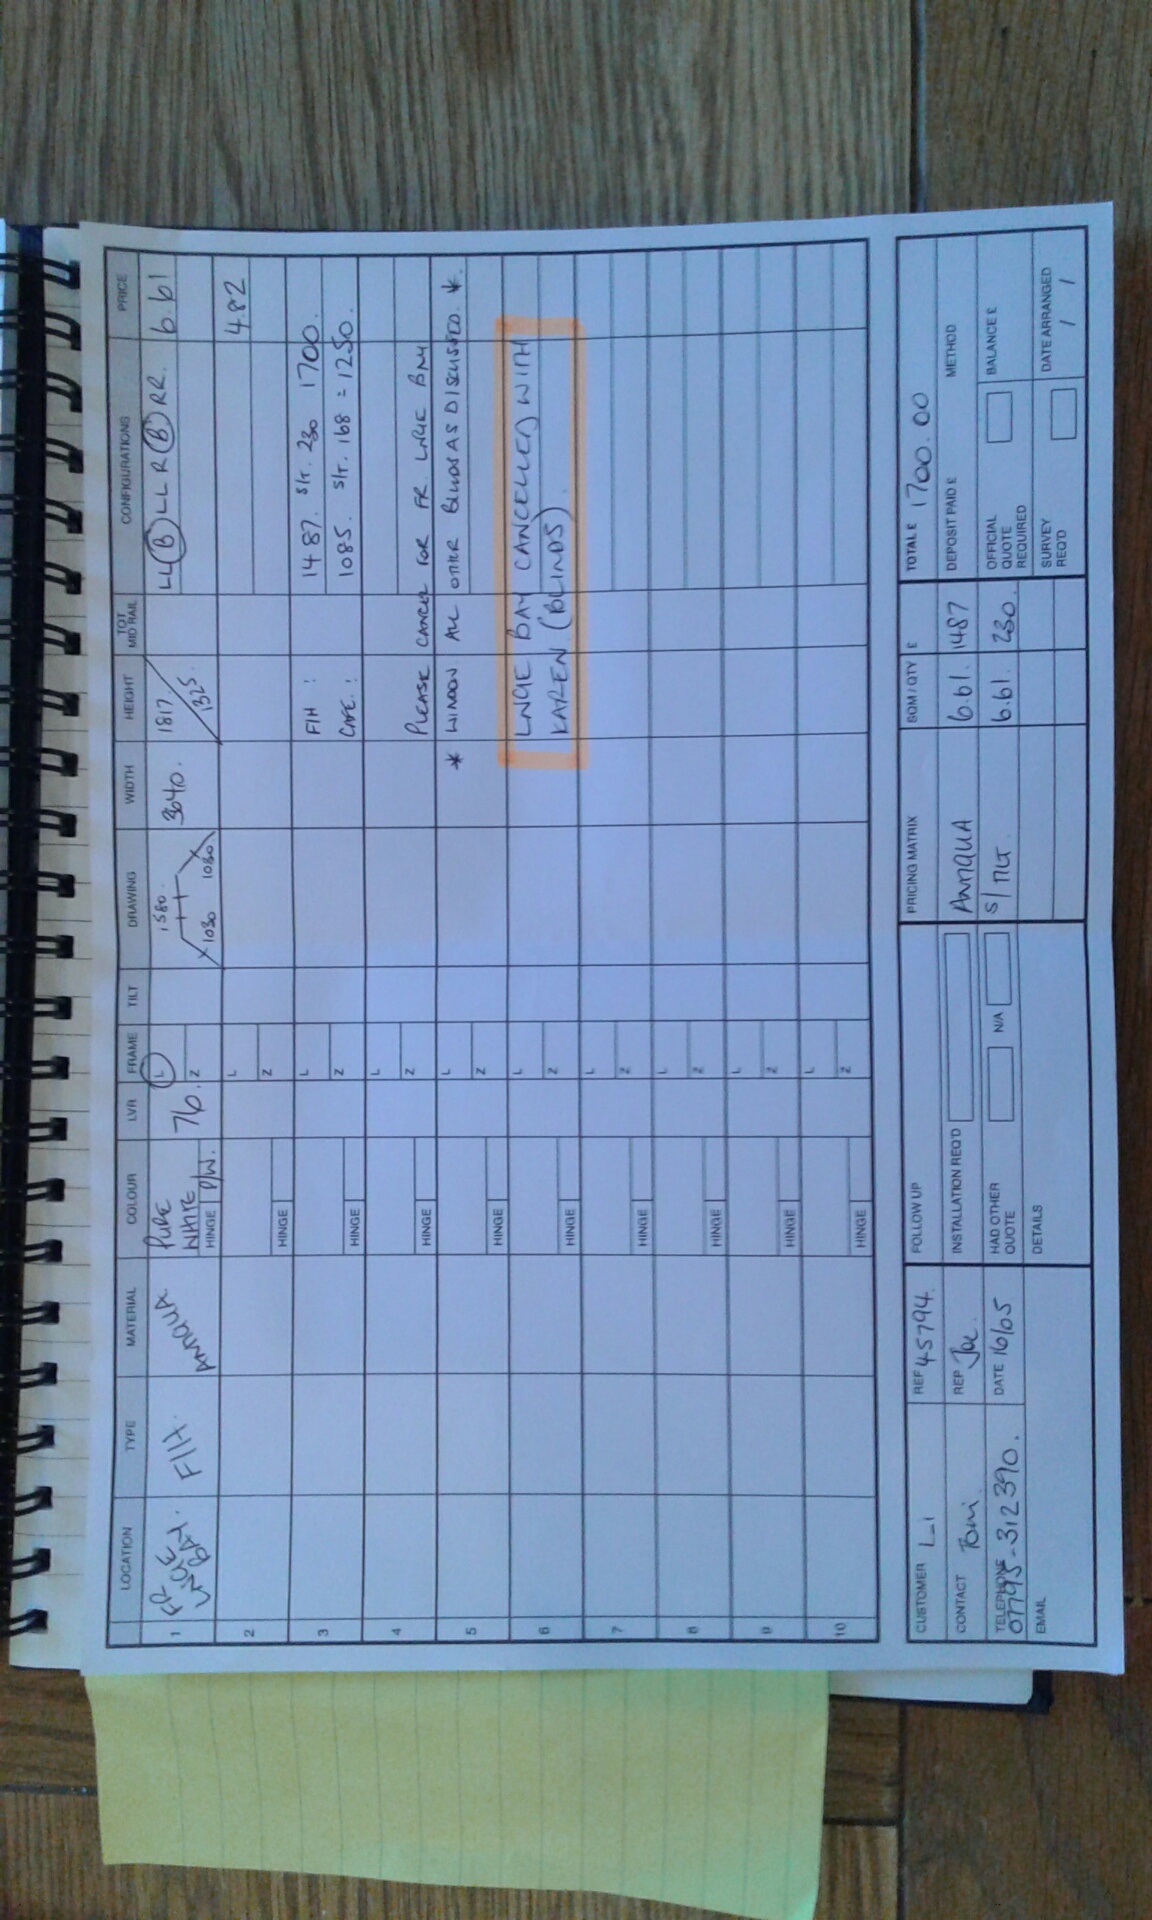 LOCATION TYPE MATERIAL COLOUR LVR FRAME TILT DRAWING WIDTH HEIGHT TOT MID RAIL CONFIGURATIONS PRICE
1 FR LNGE BAY. F/H. ANTIQUA PURE WHITE HINGE P/W. 76. L Z 1580. 1030 1030 3040. 1817/1325. LL(B)LLR(B)RR. 6.61
2 HINGE L Z 4.82
3 HINGE L Z F/H : 1487. S/T. 230 1700.
CAFE. : 1085. S/T. 168 = 1250.
4 HINGE L Z PLEASE CANCEL FOR FR. LNGE BAY
5 HINGE L Z * WINDOW ALL OTHER BLINDS AS DISCUSSED. *.
6 HINGE L Z LNGE BAY CANCELLED WITH
KAREN. (BLINDS).
7 HINGE L Z
8 HINGE L Z
9 HINGE L Z
10 HINGE L Z
CUSTOMER Li REF 45794. FOLLOW UP PRICING MATRIX SQM / QTY £ TOTAL £ 1700.00
CONTACT Toni. REP Joe. INSTALLATION REQ'D ANTIQUA 6.61. 1487 DEPOSIT PAID £ METHOD
TELEPHONE 07795-312390. DATE 16/05 HAD OTHER QUOTE N/A S/TILT. 6.61. 230. OFFICIAL QUOTE REQUIRED BALANCE £
EMAIL DETAILS SURVEY REQ'D DATE ARRANGED / /